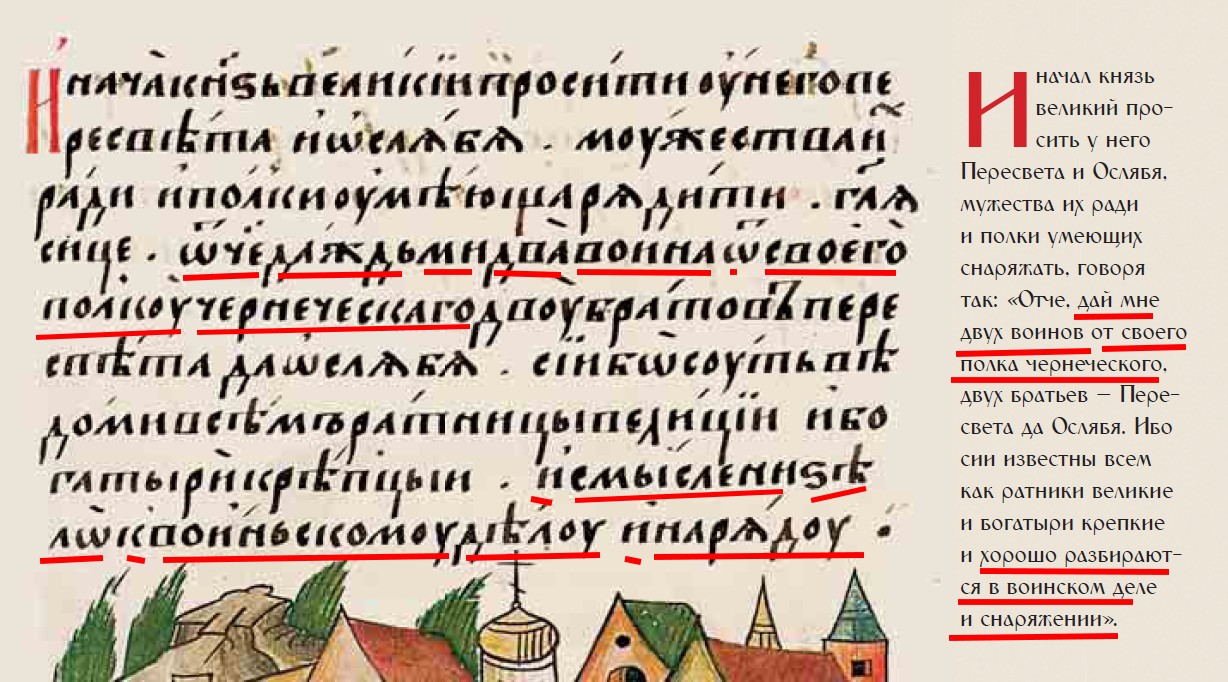 И начакнѕьвеликїипроситиоунегопе
ресвѣта иѡслѧбѧ . моужествалі
ради иполкиоумѣющаряди́ти . глѧ
сице . ѿчедаждьмидвавоинаѿсвоего
полкоучернеческагодвоубратовъпере
свѣта даѡслѧбѧ . сїибѡсоутьвѣ
домивсѣмъратницывелицїи ибо
гатырикрѣпцыи . исмысленнѕѣ
лѡквоиньскомоудѣлоу инарядоу .
И начал князь
великий про-
сить у него
Пересвета и Ослябя,
мужества их ради
и полки умеющих
снаряжать, говоря
так: «Отче, дай мне
двух воинов от своего
полка чернеческого,
двух братьев — Пере-
света да Ослябя. Ибо
сии известны всем
как ратники великие
и богатыри крепкие
и хорошо разбирают-
ся в воинском деле
и снаряжении».